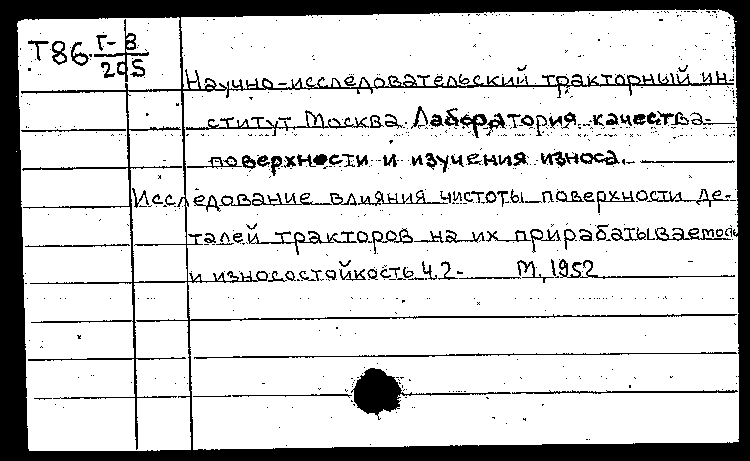 Т86 Г-8
205
Научно-исследовательский тракторный ин-
ститут. Москва. Лаборатория качества
поверхности и изучения износа.
Исследование влияния чистоты поверхности де-
талей тракторов на их прирабатываемость
и износостойкость Ч.2- М., 1952